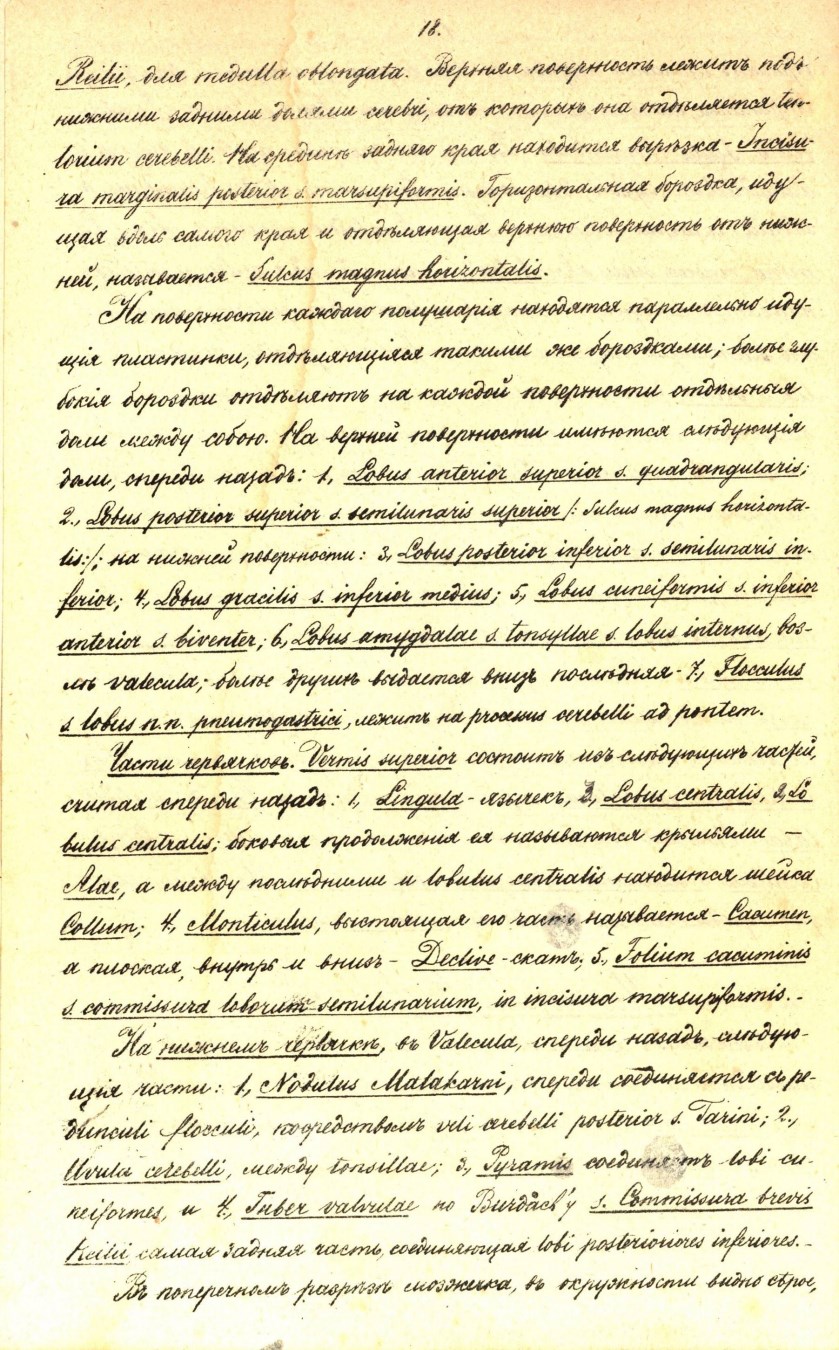 18.
Reilii, для medulla oblongata. Верхняя поверхность лежитъ подъ
нижними задними долями cerebri, отъ которыхъ она отдѣляется ten-
torium cerebelli. На срединѣ задняго края находится вырѣзка - Incisu-
ra marginalis posterior s. marsupiformis. Горизонтальная бороздка, иду-
щая вдоль самого края и отдѣляющая верхнюю поверхность отъ ниж-
ней, называется - Sulcus magnus horizontalis.
На поверхности каждаго полушарія находятся параллельно иду-
щія пластинки, отдѣляющіяся такими же бороздками; болѣе глу-
бокія бороздки отдѣляютъ на каждой поверхности отдѣльныя
доли между собою. На верхней поверхности имѣются слѣдующія
доли, спереди назадъ: 1, Lobus anterior superior s. quadrangularis;
2., Lobus posterior superior s. semilunaris superior /: Sulcus magnus horizonta-
lis:/; на нижней поверхности: 3, Lobus posterior inferior s. semilunaris in-
ferior; 4., Lobus gracilis s. inferior medius; 5, Lobus cuneiformis s. inferior
anterior s. biventer; 6, Lobus amygdalae s. tonsyllae s. lobus internus, воз-
лѣ valecula; болѣе другихъ выдается внизъ послѣдняя - 7, Flocculus
s lobus n.n. pneumogastrici, лежитъ на processus cerebelli ad pontem.
Части червячковъ. Vermis superior состоитъ изъ слѣдующихъ частей,
считая спереди назадъ: 1, Lingula - язычекъ, 2, Lobus centralis, 3, Lo
bulus centralis; боковыя продолженія ея называются крыльями —
Alae, а между послѣдними и lobulus centralis находится шейка
Collum; 4, Monticulus, выстоящая его часть называется - Cacumen,
а плоская, внутрь и внизъ - Declive - скатъ; 5, Folium cacuminis
s. commissura loborum semilunarium, in incisura marsupiformis. -
На нижнемъ червячкѣ, въ Valecula, спереди назадъ, слѣдую-
щія части: 1, Nodulus Malakarni, спереди соединяется съ pe-
dunculi flocculi, посредствомъ veli cerebelli posterior s. Tarini; 2.,
Uvula cerebelli, между tonsillae; 3, Pyramis соединяетъ lobi cu-
neiformes, и 4, Tuber valvulae по Burdach'у s. Commissura brevis
Reilii, самая задняя часть, соединяющая lobi posterioriores inferiores. -
Въ поперечномъ разрѣзѣ мозжечка, въ окружности видно сѣрое,